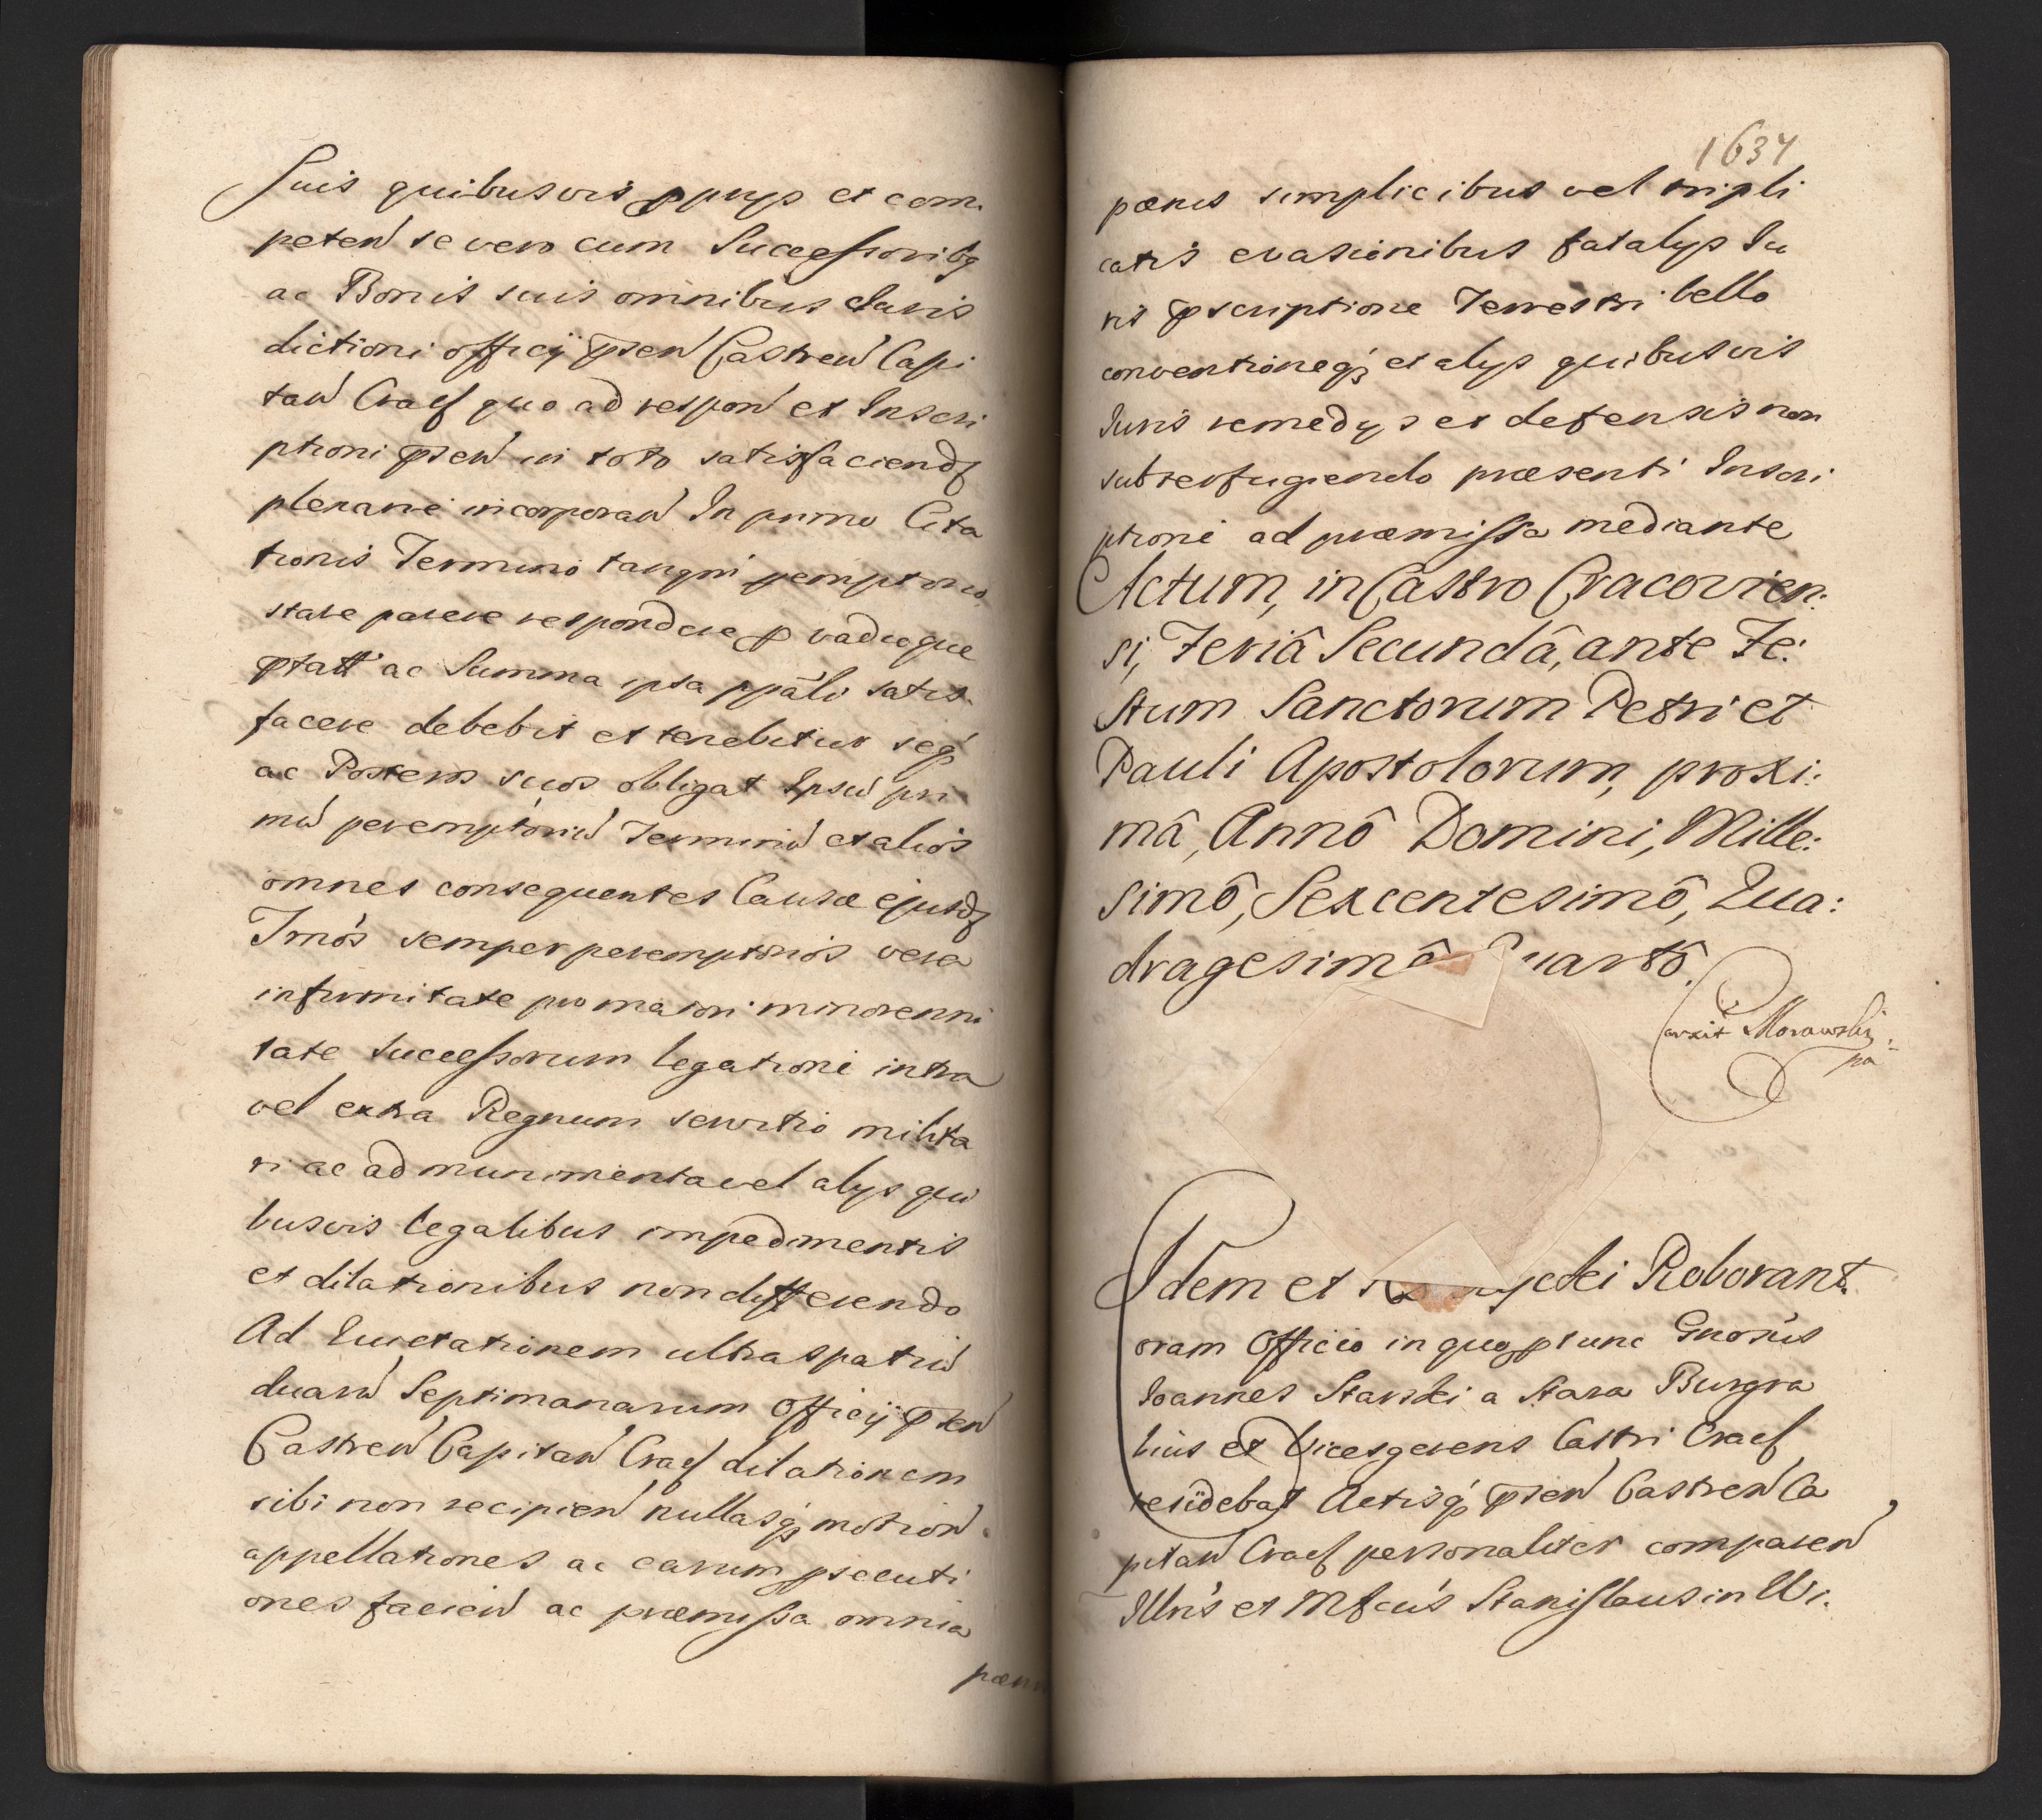 Suis quibusvis pprijs et com
peten se vero cum Successoribq
ac Bonis suis omnibus Juris
dictioni officij pnsen Castren Capi
tan Cracf quo ad respon et Inscri
ptioni pnsen in toto satisfaciendz
plenarie incorporan In primo Cita
tionis Termino tanqm pemptorio
stare parere respondere p vadioque
pstatt ac Summa ipsa ppali satis
facere debebit et tenebitur seqz
ac Posteros suos obligat Ipsu pri
mu peremptoriu Terminu et alios
omnes consequentes Causae ejusdz
Tmos semper peremptorios vera
infirmitate pro maiori minorenni
tate Successorum legationi intra
vel extra Regnum servitio milita
ri ac ad munimenta vel alijs qui
busvis legalibus impedimentis
et dilationibus non differendo
Ad Euictationem ultra spatiu
duaru Septimanarum Officij pnsen
Castren Capitan Cracf dilationem
sibi non recipien nullasqz motion
appellationes ac earum psecuti
ones facien ac praemissa omnia
paenis
1634
paenis simplicibus vel tripli
catis evasionibus fatalijs Iu
ris pscriptione Terrestri bello
conventioneqz et alijs quibusvis
Iuris remedijs et defensis non
subterfugiendo praesenti Inscri
ptione ad praemissa mediante
Actum, in Castro Cracovien:
si, Feriâ Secundâ, ante Fe:
stum Sanctorum Petri et
Pauli Apostolorum, proxi:
mâ, Annô Domini, Mille:
simô, Sexcentesimô, Qua:
dragesimô Quartô.
Morawski
pa
Idem et Roborant
oram Officio in quo ptunc Gnosus
Ioannes Starski a Stara Burgra
bius et Vicesgerens Castri Cracf
residebat Actisqz pnsen Castren Ca
pitan Cracf personaliter comparen
Illris et Mfcus Stanislaus in Wi.